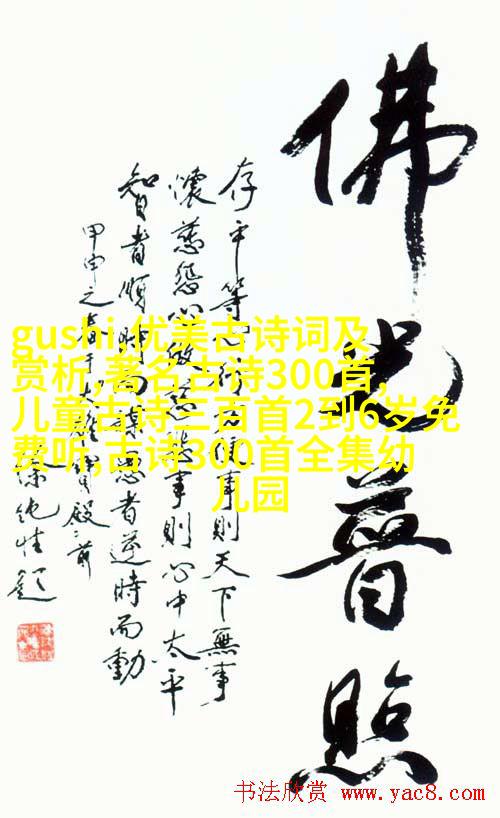 佛光普照
存平等心行方便事則天下無事
懷慈悲心做慈悲事則心中太平
智者順時而謀愚者逆時而動
甲申之春於大雄寶殿之前
gushi,优美古诗词及
赏析,著名古诗300首,
儿童古诗三百首2到6岁免
费听,古诗300首全集幼
儿园
书法欣赏 www.yac8.com